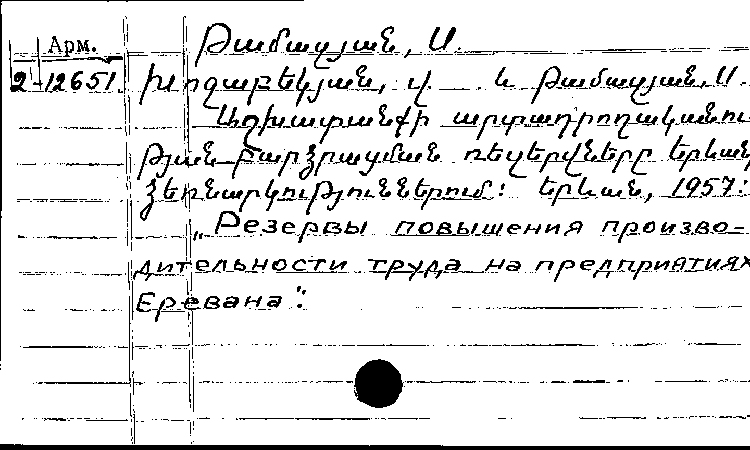 Թամազյան, Ս.
Арм.
2-12651. Խոջաբեկյան, Վ. և Թամազյան, Ս.
Աշխատանքի արտադրողականու-
թյան բարձրացման ռեզերվները Երևանի
ձեռնարկություններում: Երևան, 1957:
„Резервы повышения произво-
дительности труда на предприятиях
Еревана“.